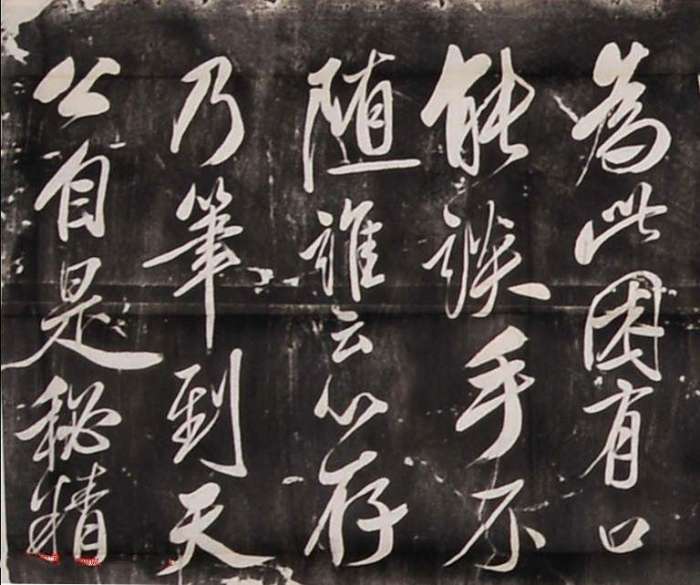 為此困有口
能談手不
随誰云心存
乃筆到天
公自是秘精